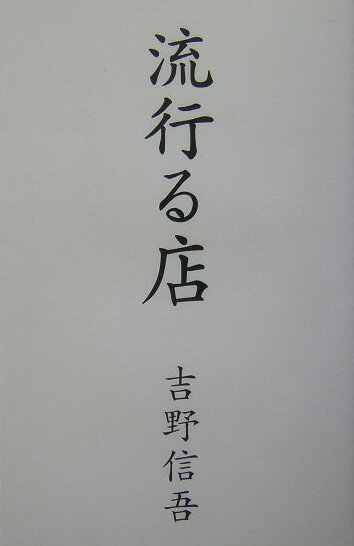 流行る店
吉野信吾